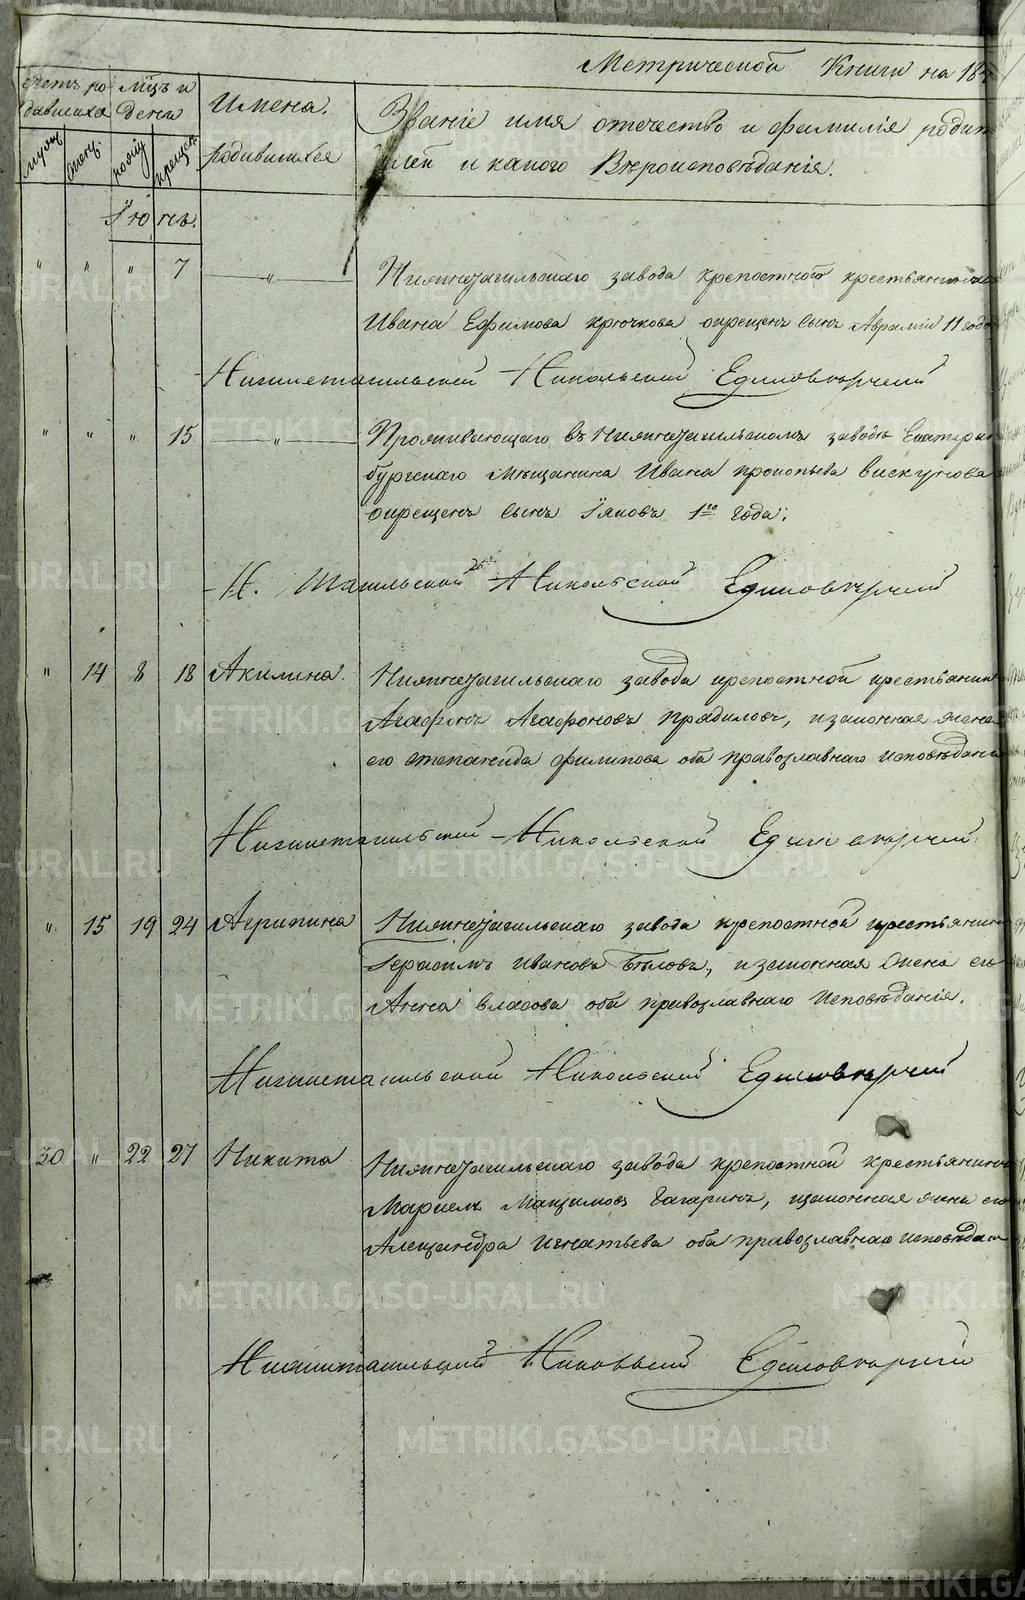 Метрической Книги на 18
Счетъ ро
дившихся
Мцъ и
день
Имена.
родившихся
Званіе имя отечество и фамилія родит
лей и какого Вѣроисповѣданія.
Іюнь.
" " " 7 " Нижнетагильскаго завода крепостного крестьянина
Ивана Ефимова Крючкова окрещенъ сынъ Аврамій 11 годо
Нижнетагильской Никольской Единоверчей
" " " 15 " Проживающаго въ Нижнетагильскомъ заводѣ Екатерин
бургскаго Мѣщанина Ивана прокопьева вискунова
окрещенъ сынъ Іяковъ 1го года.
Н. Тагильской Никольской Единовѣрчей
" 14 8 18 Акилина. Нижнетагильскаго завода крепостной крестьянин
Агафонъ Агафоновъ прядиловъ, изаконная жена
его степанида филипова оба православнаго исповѣдані
Нижнетагильской Никольской Единоверчей
" 15 19 24 Агрипина Нижнетагильскаго завода крепостной крестьянин
Герасимъ Ивановъ Бѣловъ, изаконная жена его
Анна власова оба православнаго исповѣданія.
Нижнетагильской Никольской Единовѣрчей
30 " 22 27 Никита Нижнетагильскаго завода крепостной крестьянинъ
Маркелъ Макзимовъ Гагаринъ, изаконная жена его
Алекзандра Игнатьева оба православнаго исповѣдан
Нижнетагильской Никольской Единоверчей
METRIKI.GASO-URAL.RU